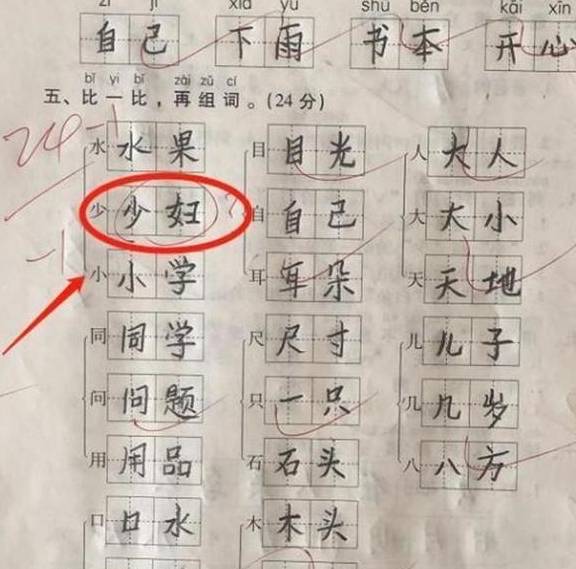 zì jǐ xià yǔ shū běn kāi xīn
自己 下雨 书本 开心
bǐ yi bǐ zài zǔ cí
五、比一比，再组词。(24分)
24 -1
水 水果 目 目光 人 大人
少 少妇 自 自己 大 大小
-1
小 小学 耳 耳朵 天 天地
同 同学 尺 尺寸 儿 儿子
问 问题 只 一只 几 几岁
用 用品 石 石头 八 八方
口 口水 木 木头